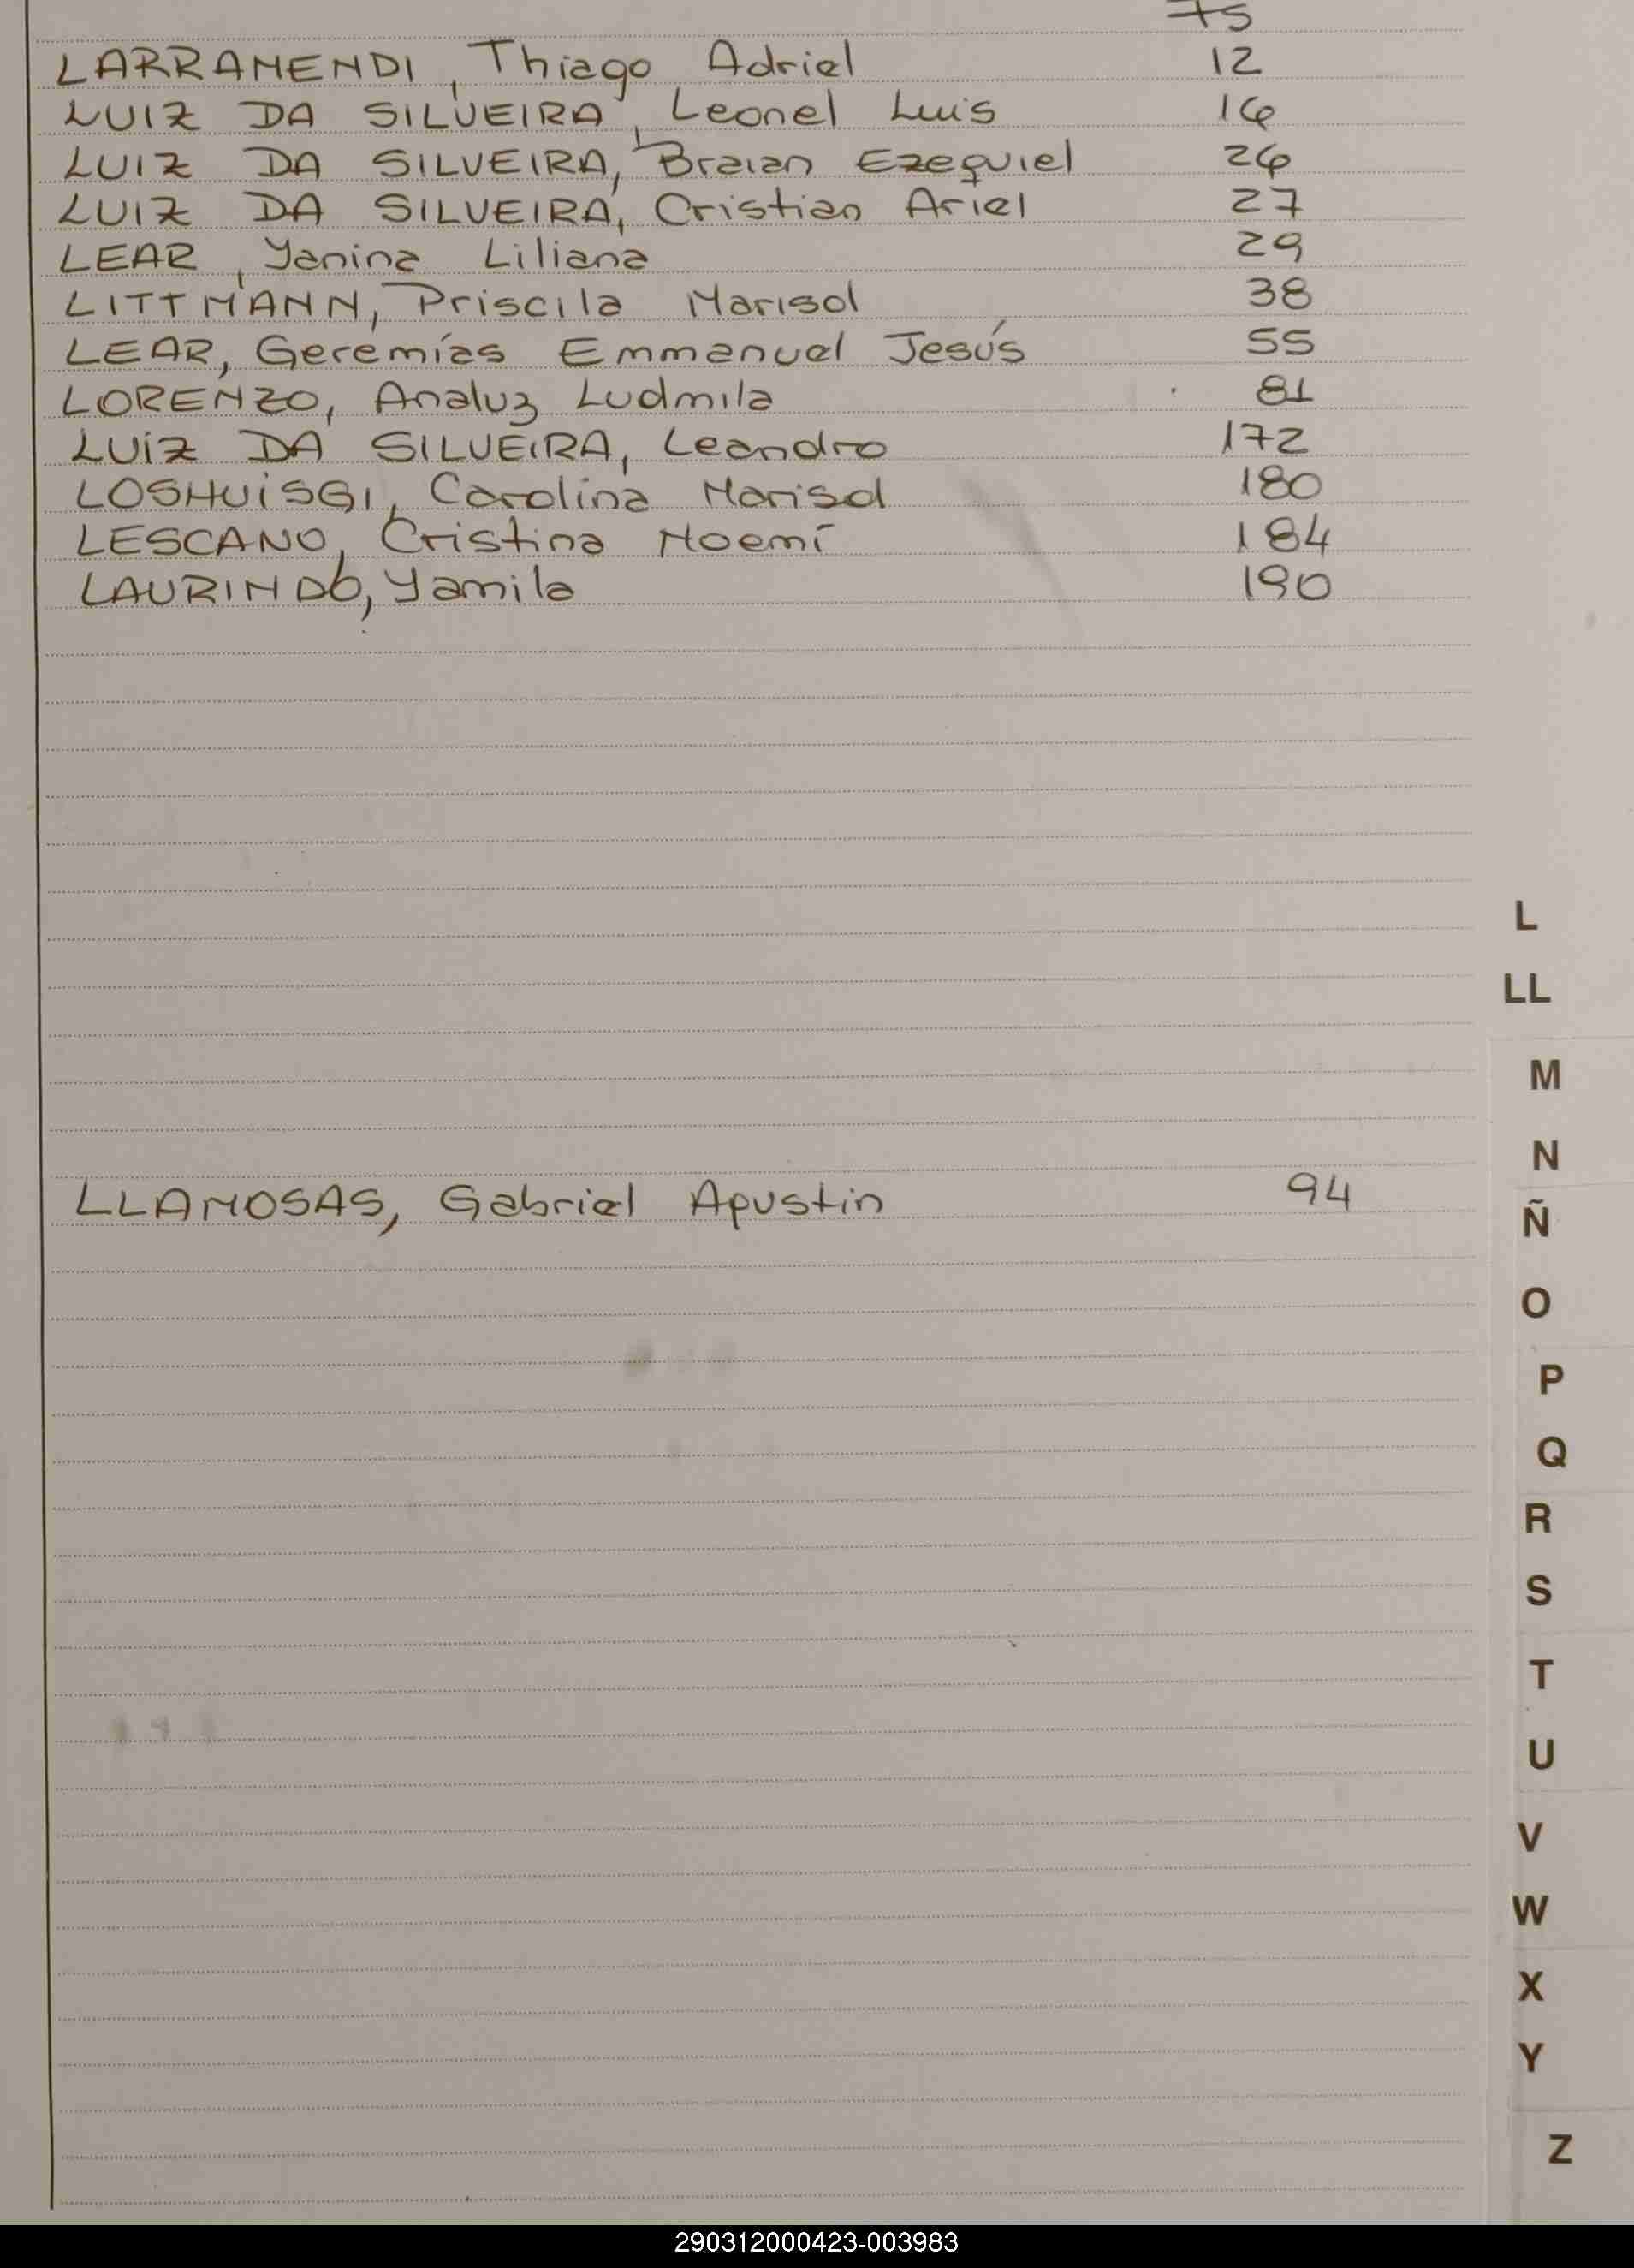 LARRAMENDI, Thiago Adriel 12
LUIZ DA SILVEIRA, Leonel Luis 16
LUIZ DA SILVEIRA, Braian Ezequiel 26
LUIZ DA SILVEIRA, Cristian Ariel 27
LEAR, Yanina Liliana 29
LITTMANN, Priscila Marisol 38
LEAR, Geremías Emmanuel Jesús 55
LORENZO, Analuz Ludmila 81
LUiZ DA SILVEIRA, Leandro 172
LOSHUiSGI, Carolina Marisol 180
LESCANO, Cristina Noemí 184
LAURINDO, Yamila 190
L
LL
M
N
LLAMOSAS, Gabriel Agustin 94
Ñ
O
P
Q
R
S
T
U
V
W
X
Y
Z
290312000423-003983